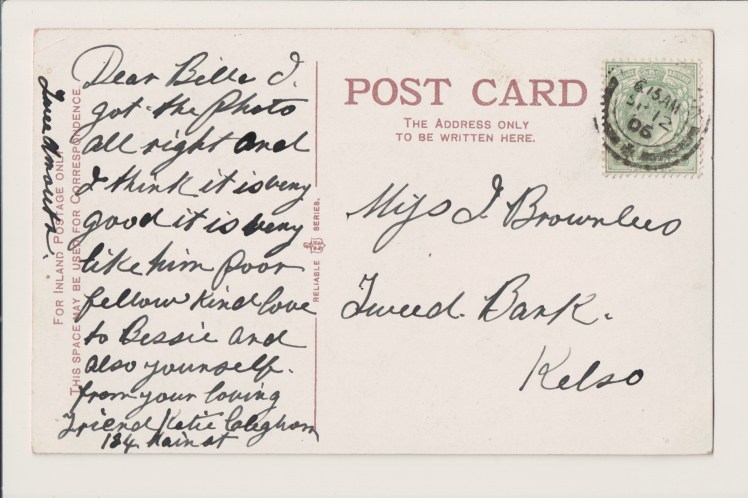 Dear Bella I.
got the Photo
all right and
I think it is very
good it is very
like him poor
fellow kind love
to Bessie and
also yourself.
from your loving
Friend Katie
134 Main st
FOR INLAND POSTAGE ONLY
THIS SPACE MAY BE USED FOR CORRESPONDENCE.
RELIABLE SERIES.
POST CARD
THE ADDRESS ONLY
TO BE WRITTEN HERE.
6 15 AM
12
06
Miss J. Brownlees
Tweed. Bank.
Kelso